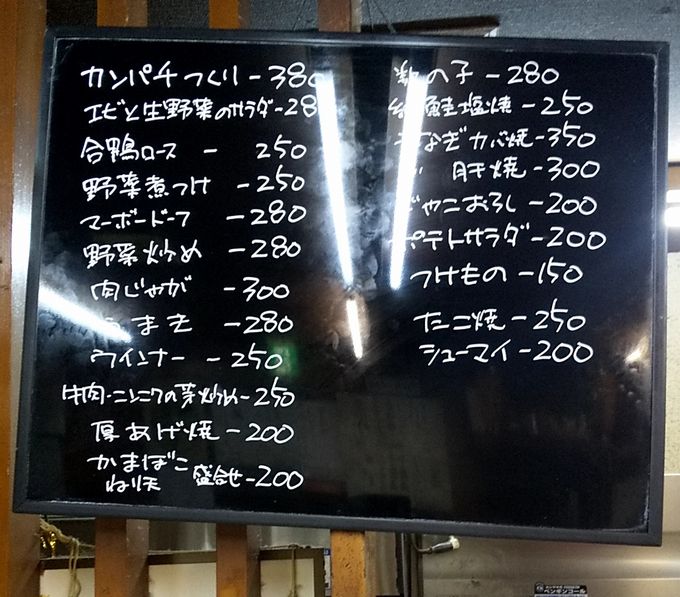 カンパチつくり-380
エビと生野菜のサラダ-28
合鴨ロース - 250
野菜煮つけ -250
マーボードーフ -280
野菜炒め -280
肉じゃが -300
うまき -280
ウインナー -250
牛肉・ニンニクの芽炒め-250
厚あげ焼 -200
かまぼこ
ねり天 盛合せ-200
数の子 -280
鮭塩焼 -250
うなぎカバ焼-350
〃 肝焼 -300
じゃこおろし -200
ポテトサラダ-200
つけもの -150
たこ焼 -250
シューマイ-200
ペンギンコール